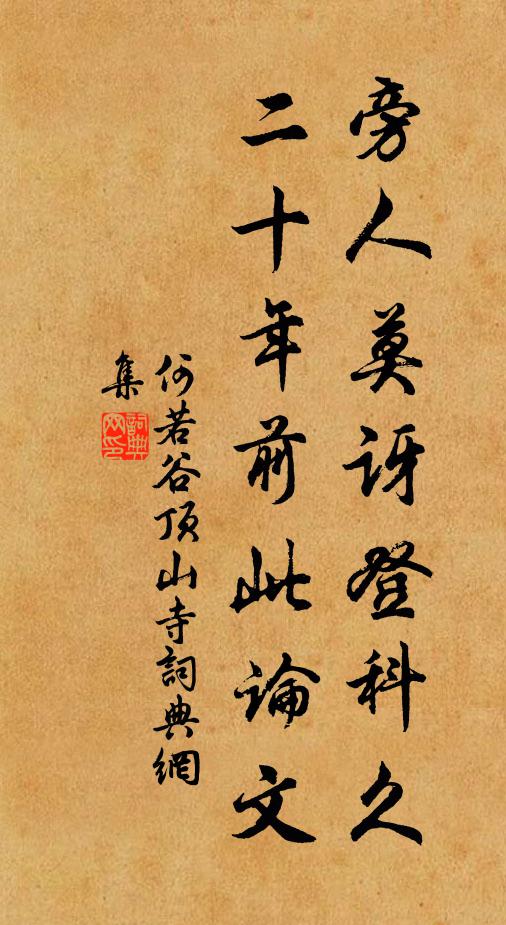 旁人莫訝登科久
二十年前此論文
何若谷頂山寺詞典網
集
詞典网印